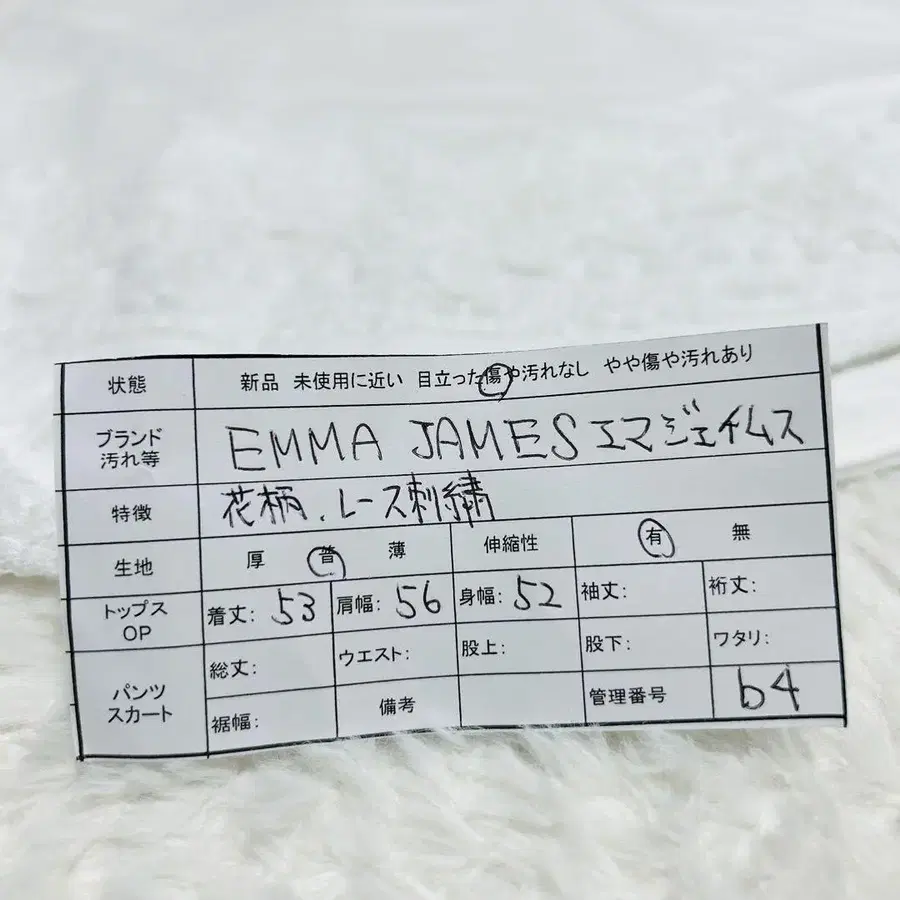 状態 新品 未使用に近い 目立った傷や汚れなし やや傷や汚れあり
ブランド 汚れ等 EMMA JAMES エマジェイムス
特徴 花柄、レース刺繍
生地 厚 普 薄 伸縮性 有 無
トップス OP 着丈: 53 肩幅: 56 身幅: 52 袖丈: 裄丈:
パンツ スカート 総丈: ウエスト: 股上: 股下: ワタリ:
裾幅: 備考 管理番号 b4